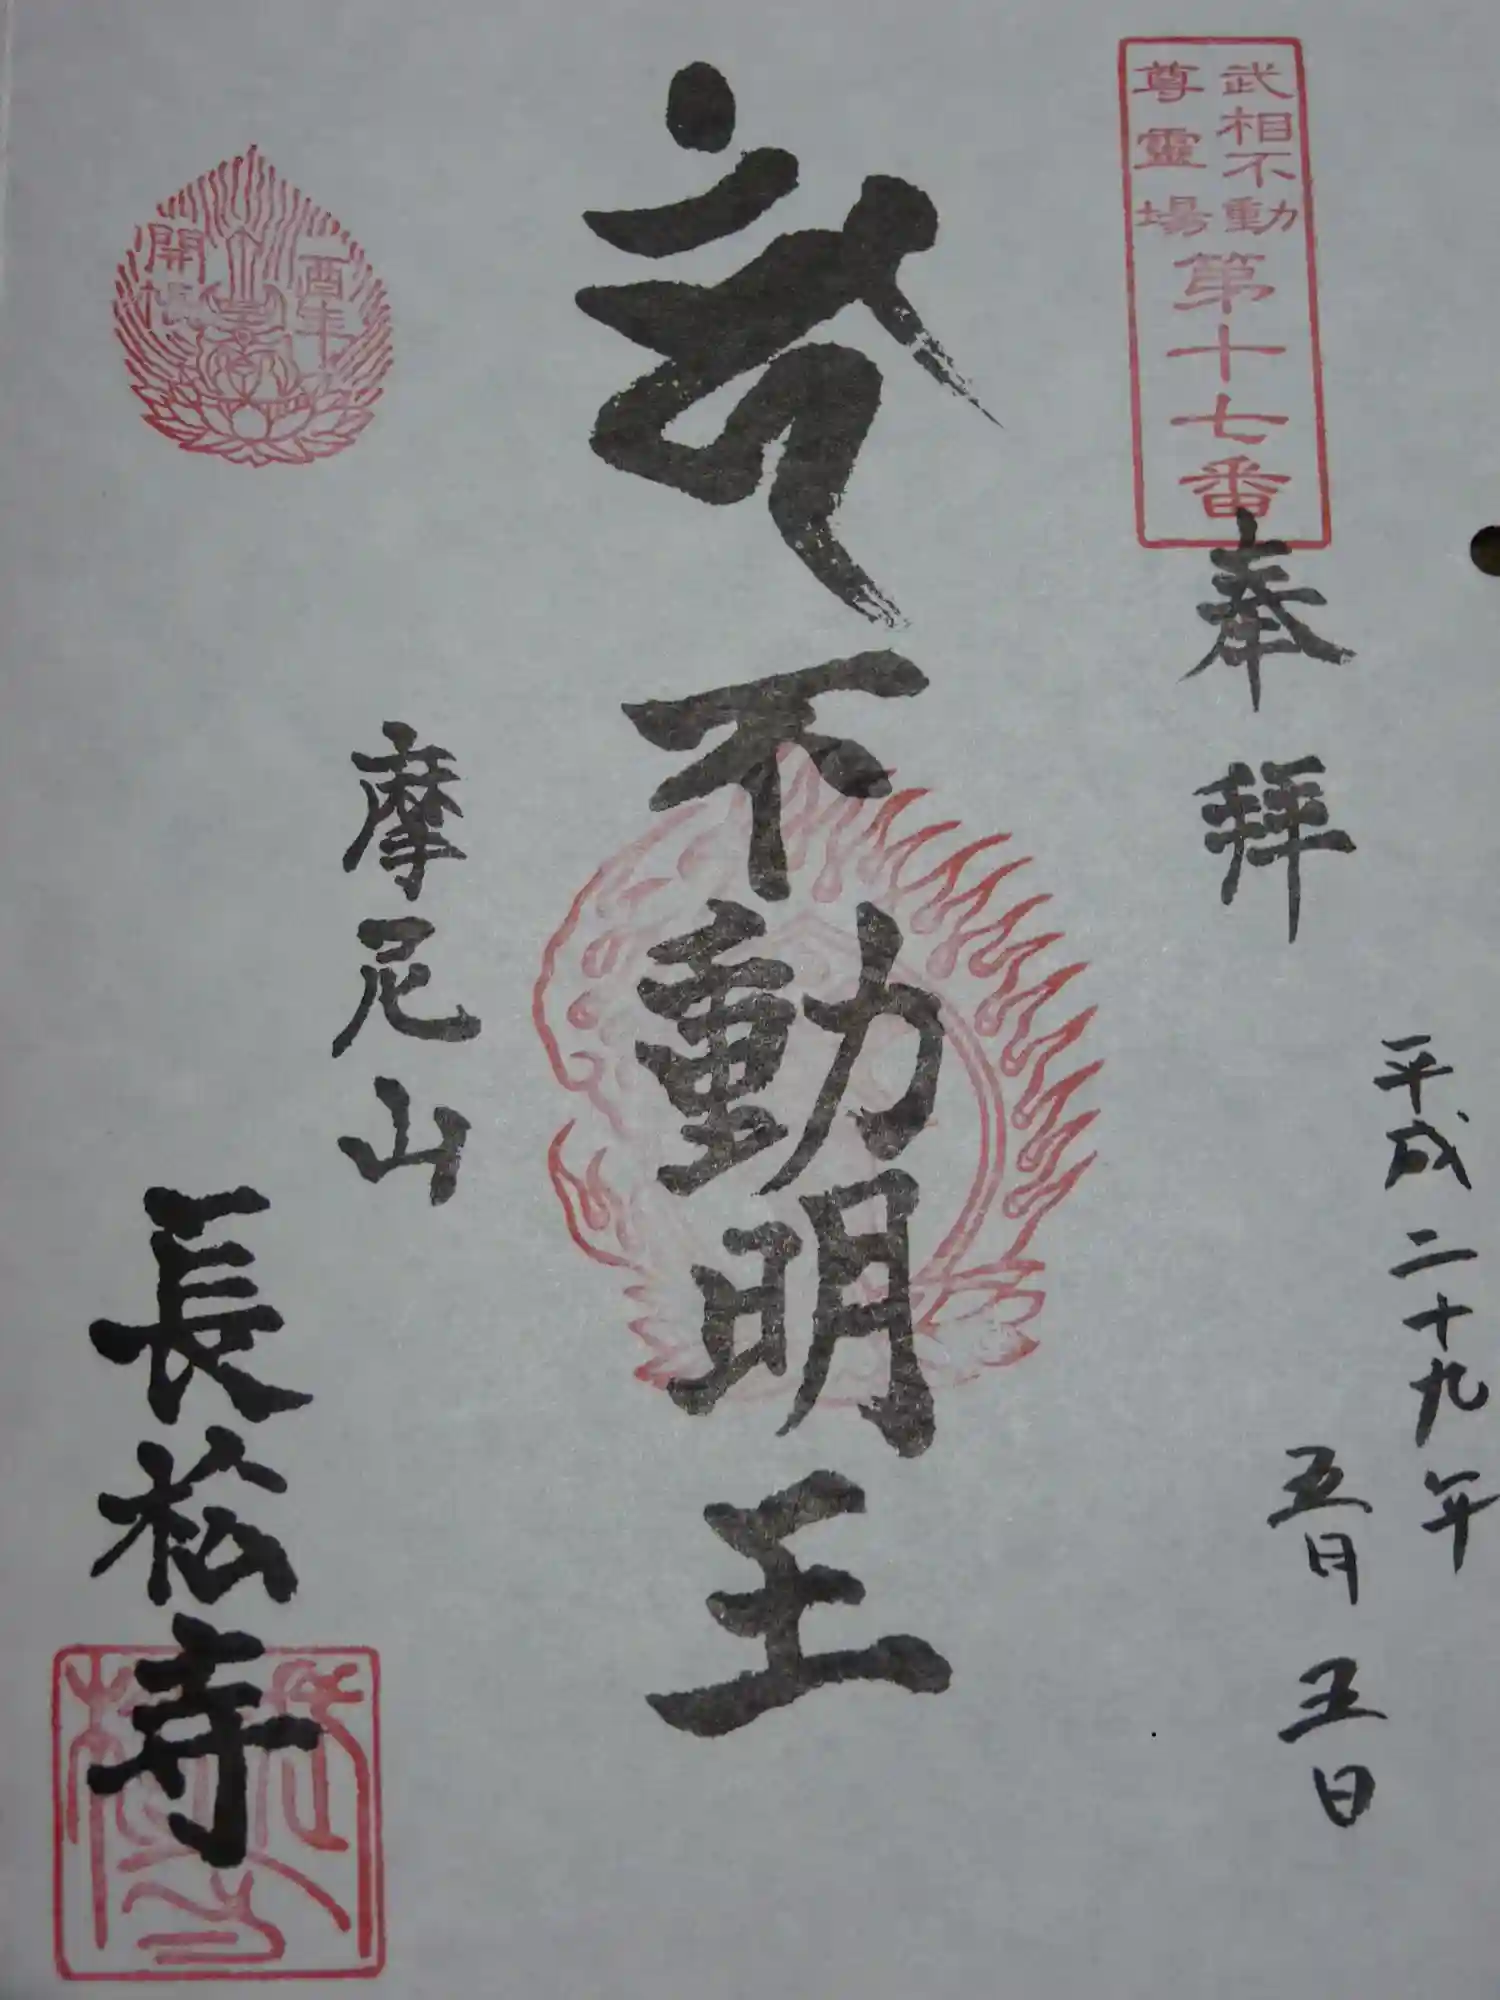 武相不動
尊靈場
第十七番
奉拜
平成二十九年
五月五日
不動明王
摩尼山
長松寺
酉年
開帳